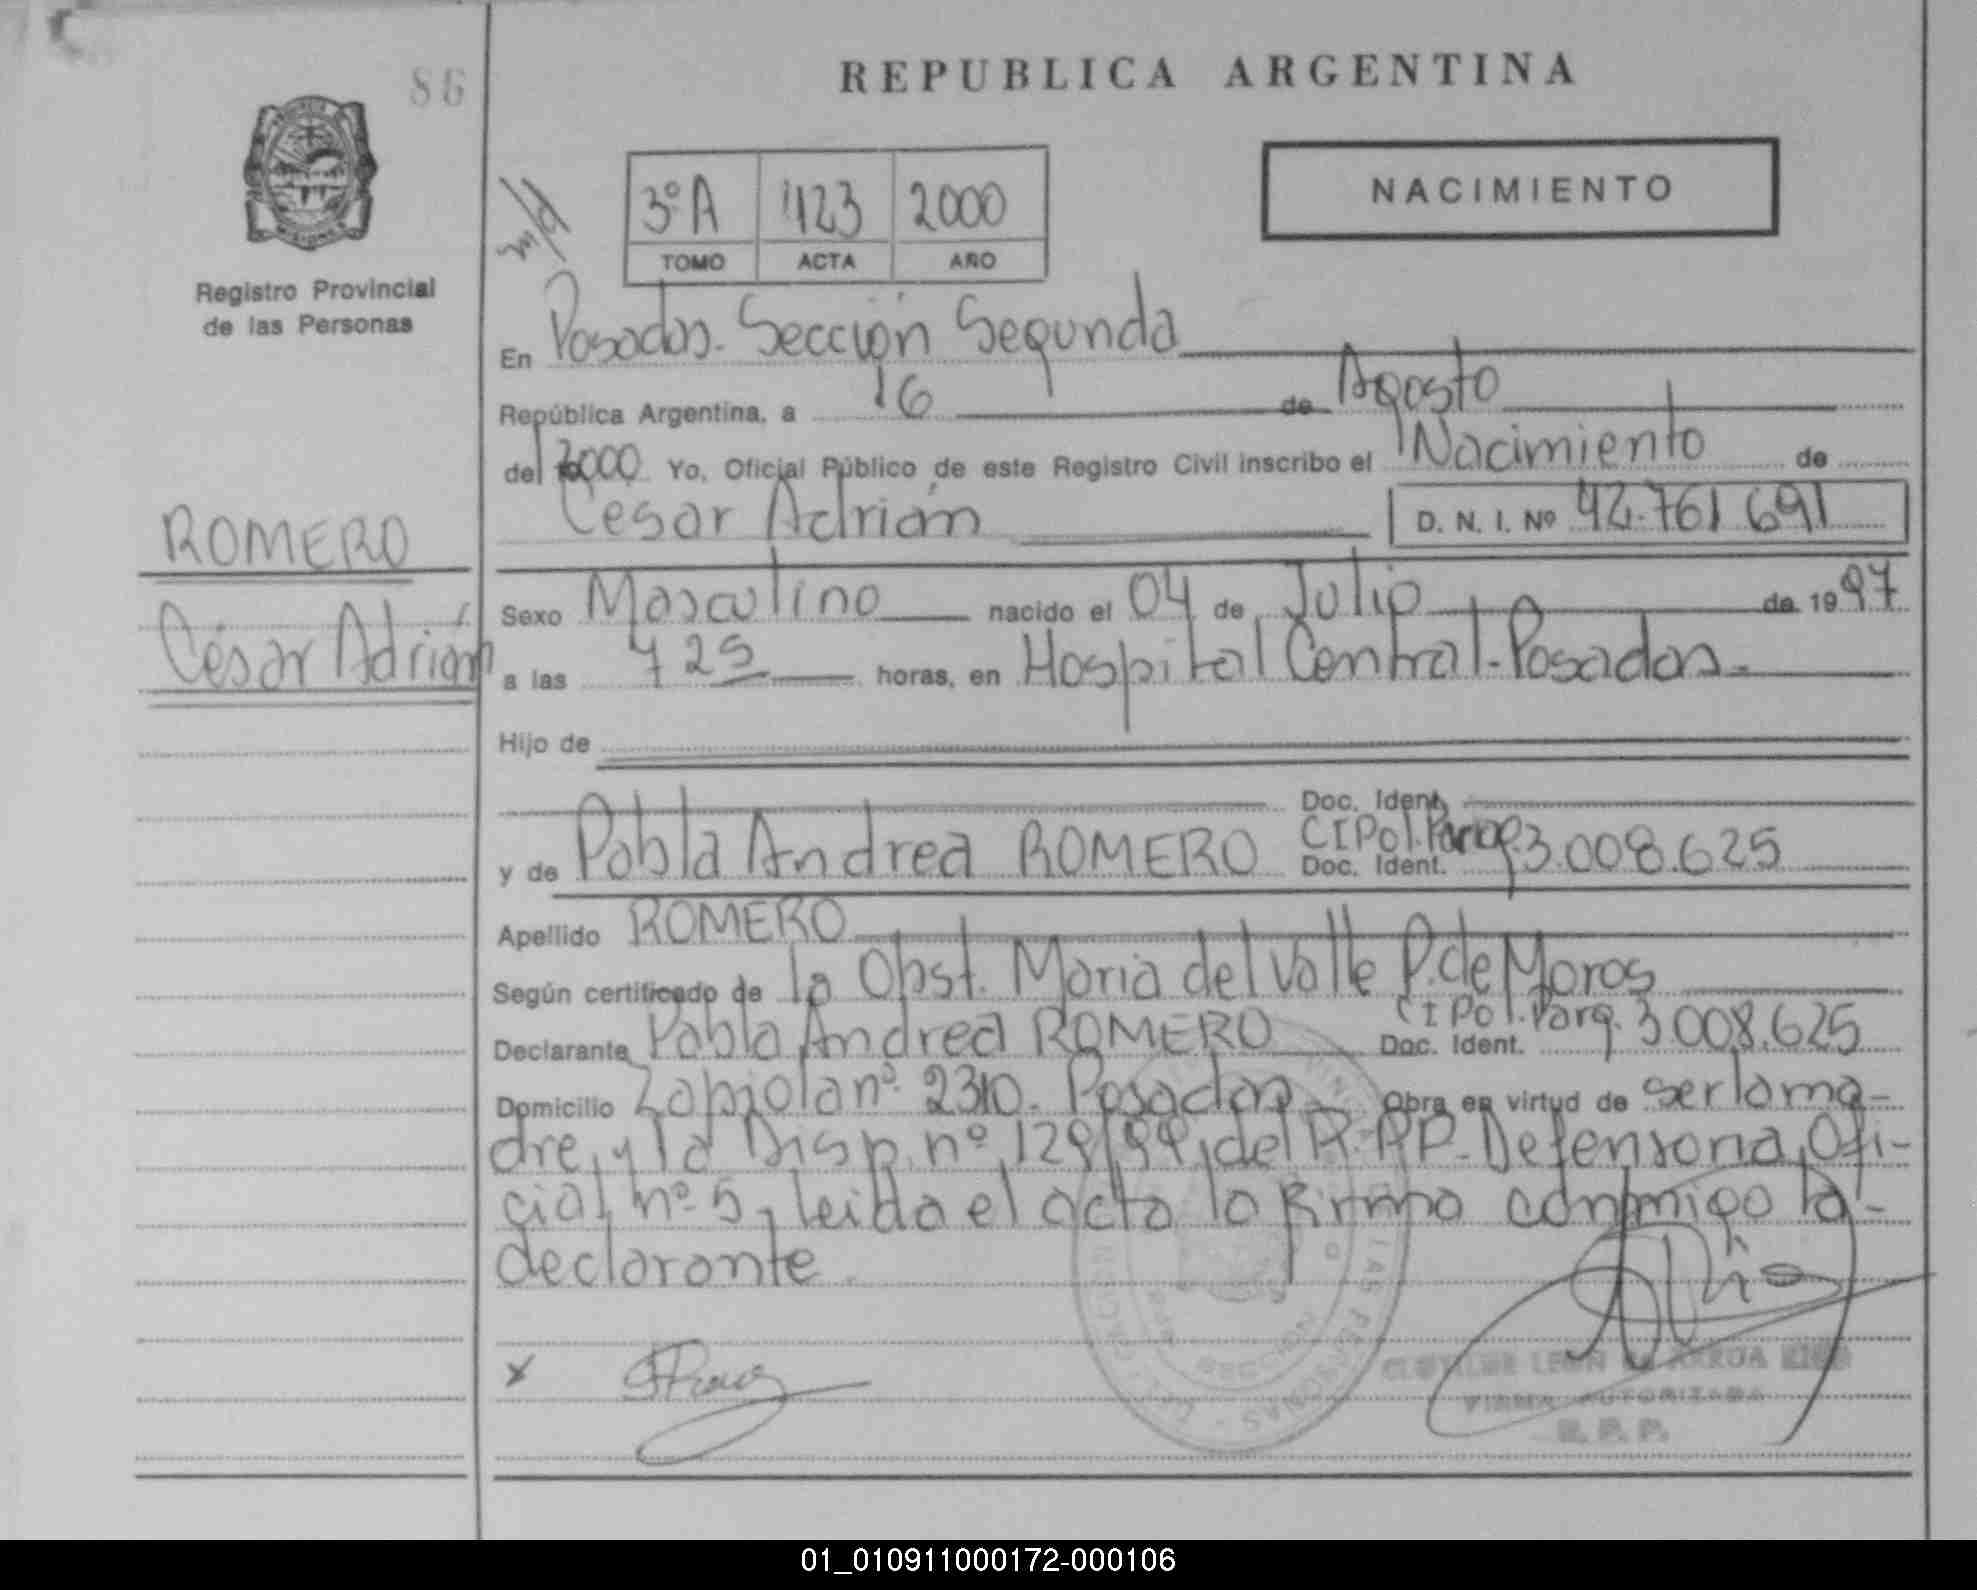 86
REPUBLICA ARGENTINA
NACIMIENTO
3ºA 1123 2000
TOMO ACTA AÑO
MISIONES
Registro Provincial
de las Personas
En Posadas. Sección Segunda
República Argentina, a 16 de Agosto
del 2000 Yo, Oficial Público de este Registro Civil inscribo el Nacimiento de
César Adrián D. N. I. Nº 42.761 691
ROMERO
César Adrián
Sexo Masculino nacido el 04 de Julio de 1997
a las 7 25 horas, en Hospital Central-Posadas.
Hijo de
Doc. Ident.
y de Pabla Andrea ROMERO Doc. Ident. CIPol.Parag. 3.008.625
Apellido ROMERO
Según certificado de la Obst. Maria del Valle P. de Moros
Declarante Pabla Andrea ROMERO Doc. Ident. CIPol.Parg. 3.008.625
Domicilio Zapiola nº 2310. Posadas Obra en virtud de ser la ma-
dre, y la Disp. nº 129/99, del R.P.P- Defensoria Ofi-
cial nº 5, leida el acta la firma conmigo la-
declarante.
x
FIRMA AUTORIZADA
R. P. P.
01_010911000172-000106